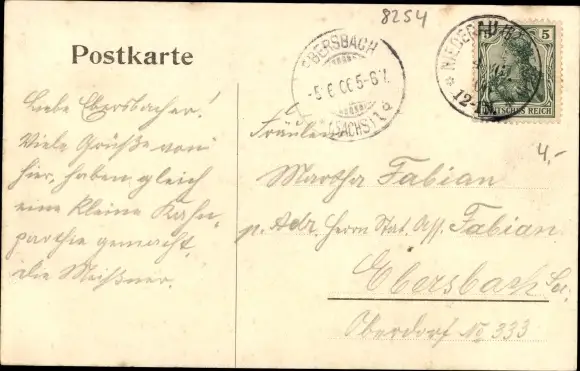 8254
Postkarte
EBERSBACH
-5.6.06 5-6 N.
(SACHSEN)
NIEDERAU
12-1N.
5
DEUTSCHES REICH
4,-
Liebe Ebersbacher!
Viele Grüße von
hier, haben gleich
eine kleine Kahn-
parthie gemacht,
die Meißner.
Fräulein
Martha Fabian
p. Adr. Herrn Stat. Ass. Fabian
Ebersbach Sa.
Oberdorf No 333